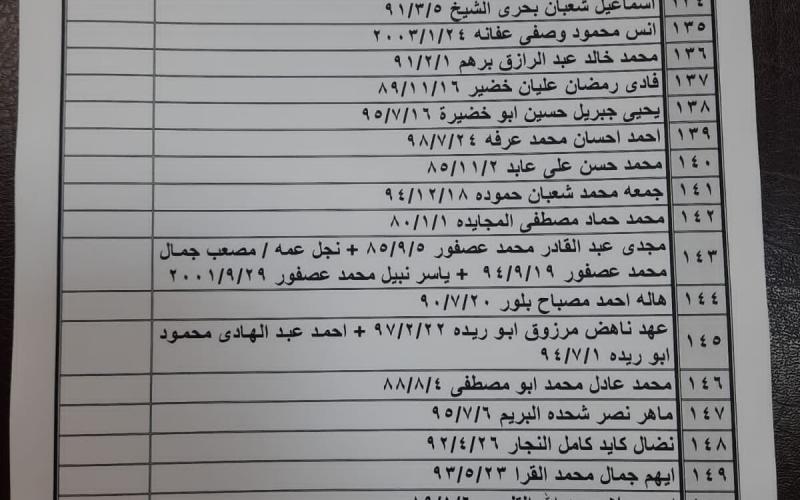 ١٣٤ اسماعيل شعبان بحرى الشيخ ٩١/٣/٥
١٣٥ انس محمود وصفى عفانه ٢٠٠٣/١/٢٤
١٣٦ محمد خالد عبد الرازق برهم ٩١/٢/١
١٣٧ فادى رمضان عليان خضير ٨٩/١١/١٦
١٣٨ يحيى جبريل حسين ابو خضيرة ٩٥/٧/١٦
١٣٩ احمد احسان محمد عرفه ٩٨/٧/٢٤
١٤٠ محمد حسن على عابد ٨٥/١١/٢
١٤١ جمعه محمد شعبان حموده ٩٤/١٢/١٨
١٤٢ محمد حماد مصطفى المجايده ٨٠/١/١
١٤٣ مجدى عبد القادر محمد عصفور ٨٥/٩/٥ + نجل عمه / مصعب جمال
محمد عصفور ٩٤/٩/١٩ + ياسر نبيل محمد عصفور ٢٠٠١/٩/٢٩
١٤٤ هاله احمد مصباح بلور ٩٠/٧/٢٠
١٤٥ عهد ناهض مرزوق ابو ريده ٩٧/٢/٢٢ + احمد عبد الهادى محمود
ابو ريده ٩٤/٧/١
١٤٦ محمد عادل محمد ابو مصطفى ٨٨/٨/٤
١٤٧ ماهر نصر شحده البريم ٩٥/٧/٦
١٤٨ نضال كايد كامل النجار ٩٢/٤/٢٦
١٤٩ ايهم جمال محمد القرا ٩٣/٥/٢٣